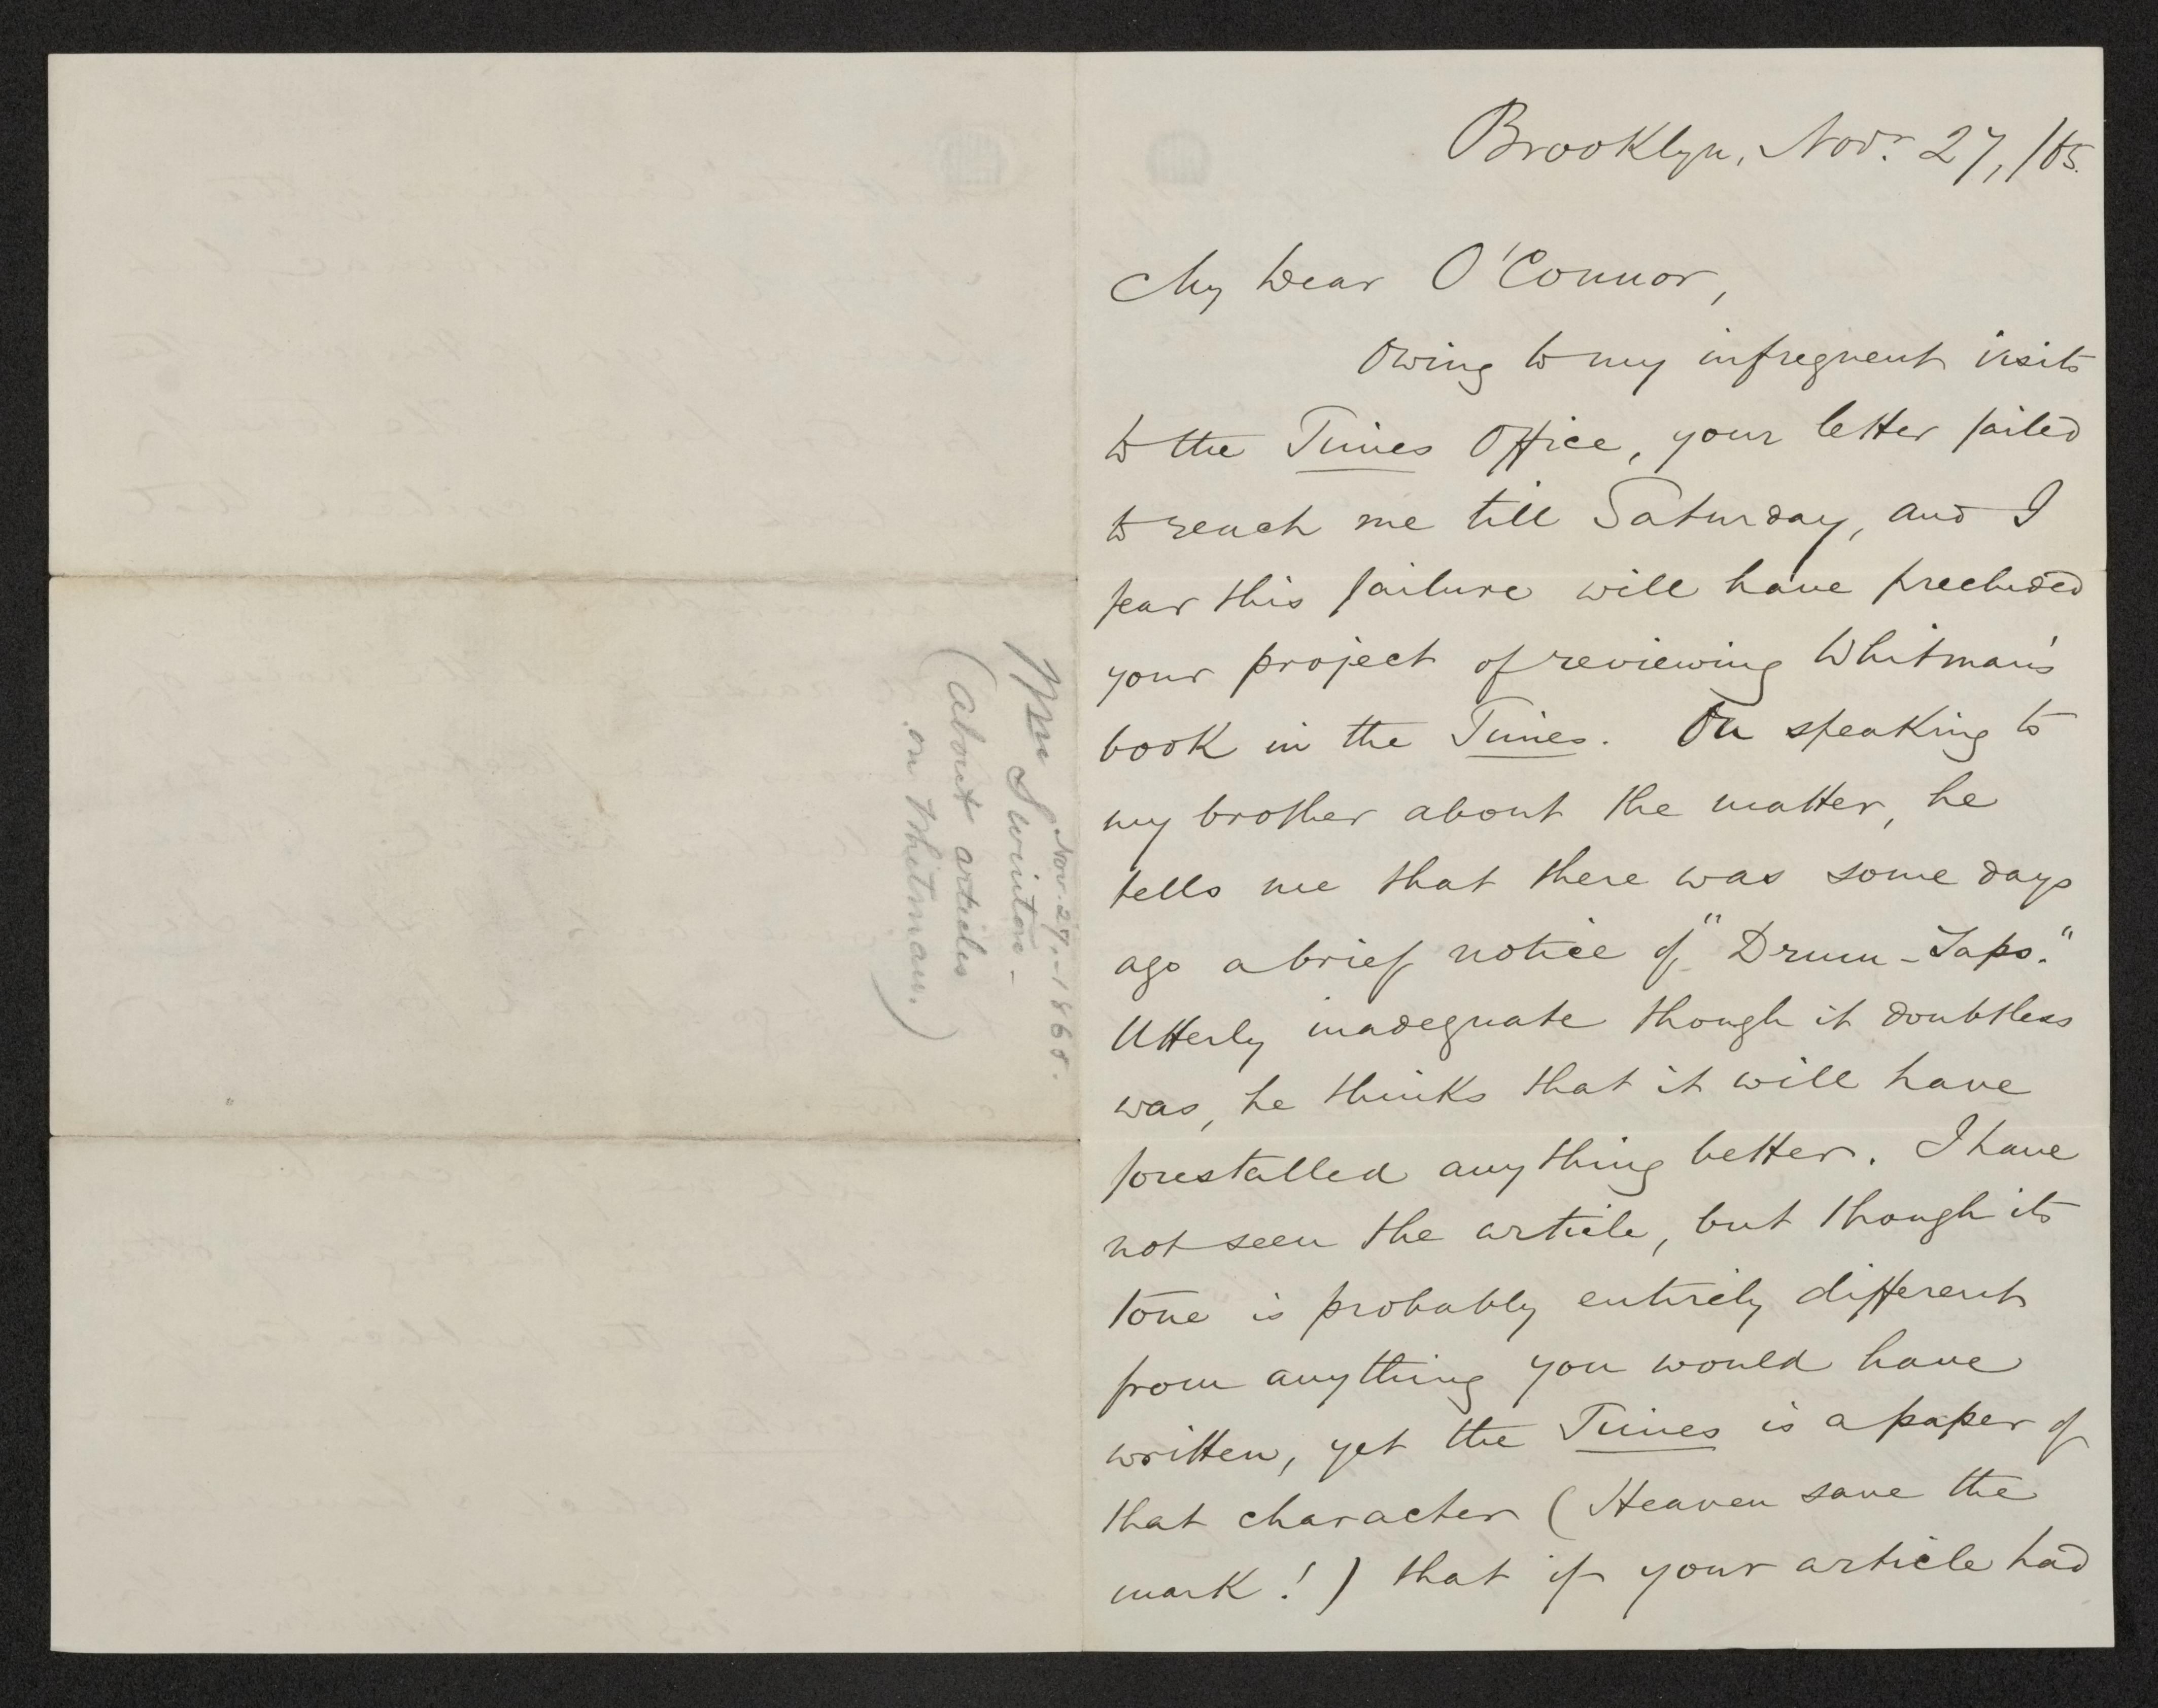 Brooklyn, Novr. 27, /65.
My dear O'Connor,
Owing to my infrequent visits
to the Times Office, your letter failed
to reach me till Saturday, and I
fear this failure will have precluded
your project of reviewing Whitman's
book in the Times. On speaking to
my brother about the matter, he
tells me that there was some days
ago a brief notice of "Drum-Taps."
Utterly inadequate though it doubtless
was, he thinks that it will have
forestalled anything better. I have
not seen the article, but though its
tone is probably entirely different
from anything you would have
written, yet the Times is a paper of
that character (Heaven save the
mark!) that if your article had
Nov. 27,-1865.
Wm Swinton-
(about articles
on Whitman.)